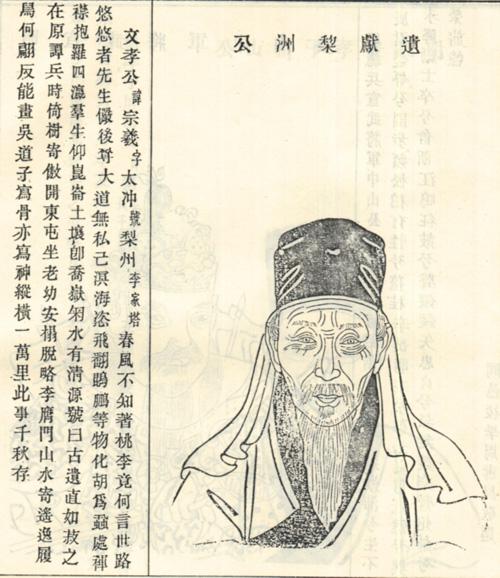 遺獻梨洲公
文孝公諱宗羲字太冲號梨州李家塔春風不知著桃李竟何言世路
悠悠者先生儼後尊大道無私己溟海恣飛翻鵾鵬等物化胡爲蝨處褌
襟抱羅四瀛羣生仰崑崙土壤卽喬嶽矧水有清源號曰古遺直如之
在原譚兵時倚樹寄傲開東屯坐老幼安榻脫略李膺門山水寄遙逸履
舄何翩反能畫吳道子寫骨亦寫神縱橫一萬里此事千秋存